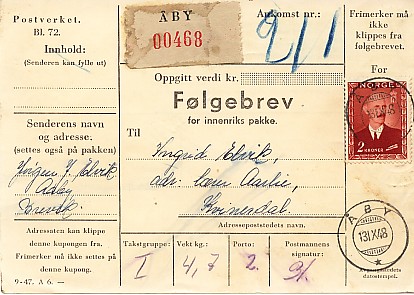 Postverket.
Bl. 72.
Innhold:
(Senderen kan fylle ut)
Senderens navn
og adresse.
(settes også på pakken)
Jørgen Y. Ebvik
Åby
Brevik.
Adressaten kan klippe
denne kupongen fra.
Frimerker må ikke settes på
denne kupong.
9-47. A 6. —
ÅBY
00468
Ankomst nr.:
2/1
Frimerker må
ikke
klippes fra
følgebrevet.
Oppgitt verdi kr.
Følgebrev
for innenriks pakke.
Til
Ingrid Ebvik,
adr.
Kvinesdal.
Adressepoststedets navn.
NORGE
2 KRONER
ÅBY
13IX48
Takstgruppe:
I
Vekt kg.:
4,7
Porto:
2.
Postmannens
signatur:
Avgangsstedets
datostempel.